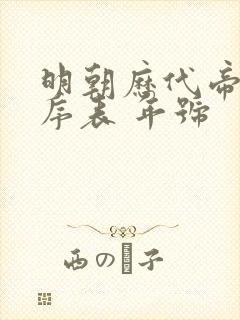 明朝历代帝
序表 年號
西の 子